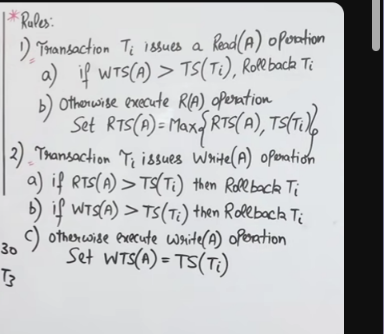 * Rules:
1) Transaction Ti issues a Read(A) operation
a) if WTS(A) > TS(Ti), Rollback Ti
b) Otherwise execute R(A) operation
Set RTS(A) = Max{RTS(A), TS(Ti)}
2) Transaction Ti issues Write(A) operation
a) if RTS(A) > TS(Ti) then Rollback Ti
b) if WTS(A) > TS(Ti) then Rollback Ti
c) otherwise execute Write(A) operation
Set WTS(A) = TS(Ti)
30
T3